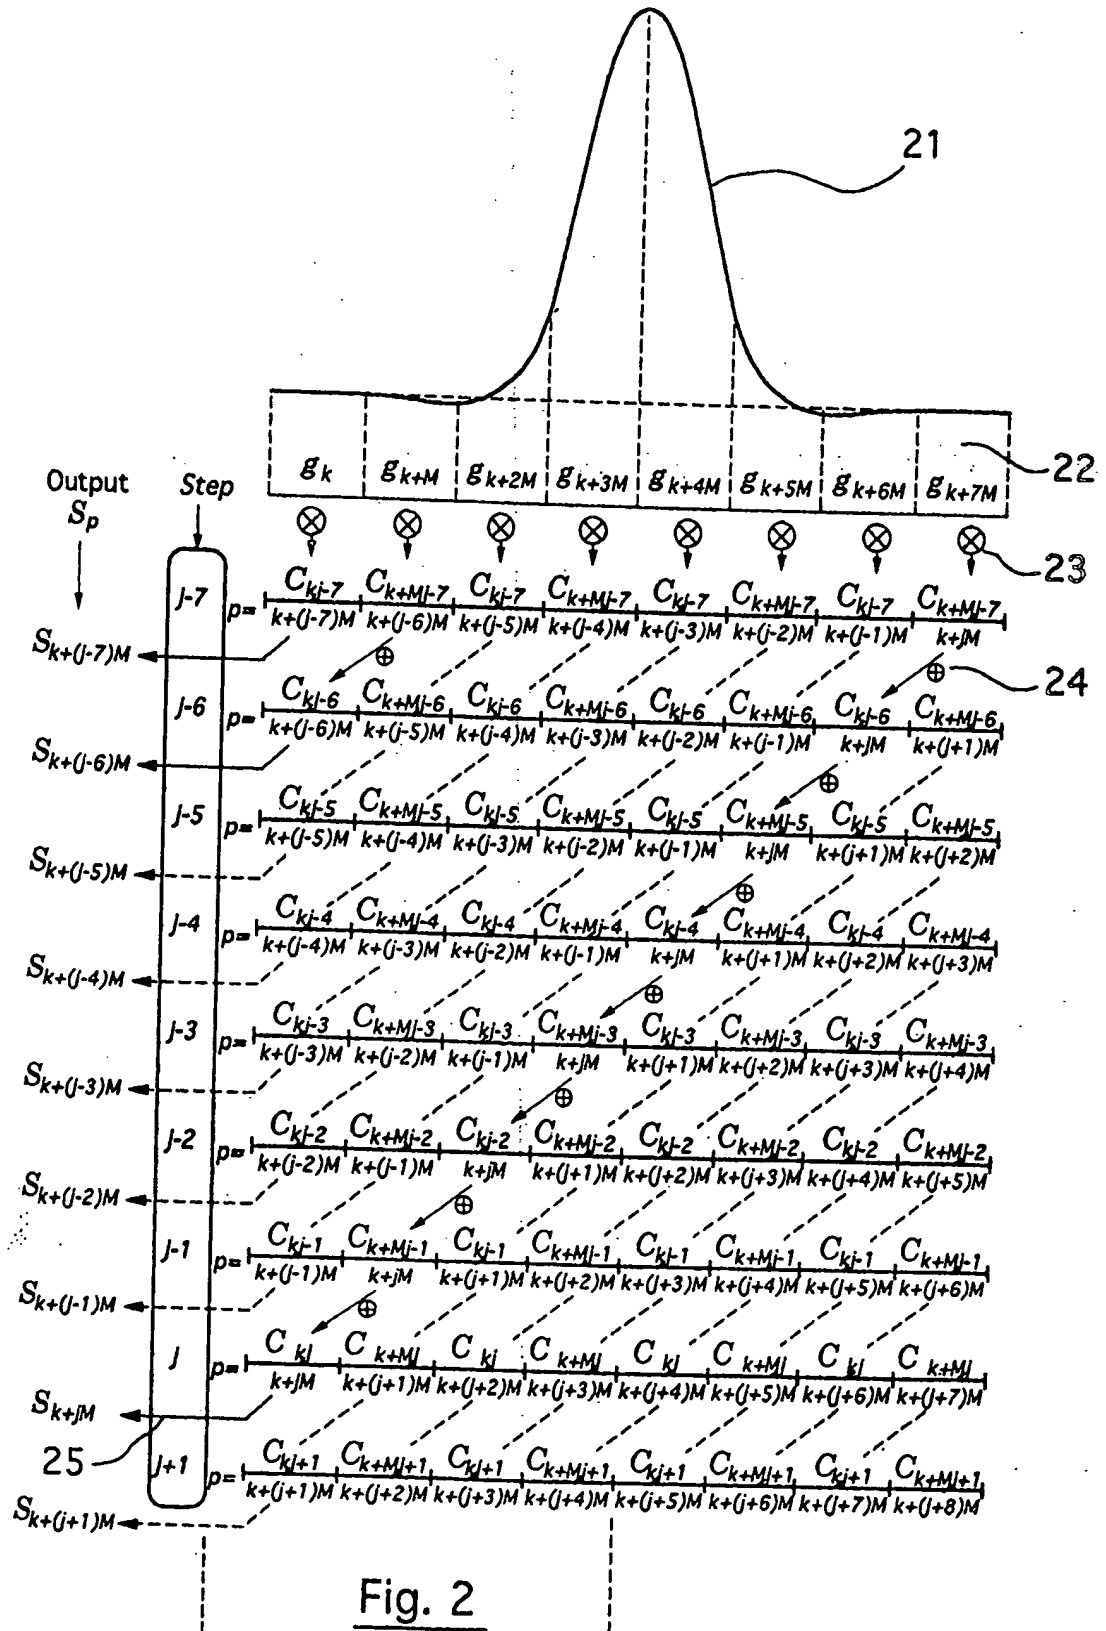 21
g k g k+M g k+2M g k+3M g k+4M g k+5M g k+6M g k+7M
22
Output Step
S p
23
j-7 p= C kj-7 C k+Mj-7 C kj-7 C k+Mj-7 C kj-7 C k+Mj-7 C kj-7 C k+Mj-7
k+(j-7)M k+(j-6)M k+(j-5)M k+(j-4)M k+(j-3)M k+(j-2)M k+(j-1)M k+jM
S k+(j-7)M
24
j-6 p= C kj-6 C k+Mj-6 C kj-6 C k+Mj-6 C kj-6 C k+Mj-6 C kj-6 C k+Mj-6
k+(j-6)M k+(j-5)M k+(j-4)M k+(j-3)M k+(j-2)M k+(j-1)M k+jM k+(j+1)M
S k+(j-6)M
j-5 p= C kj-5 C k+Mj-5 C kj-5 C k+Mj-5 C kj-5 C k+Mj-5 C kj-5 C k+Mj-5
k+(j-5)M k+(j-4)M k+(j-3)M k+(j-2)M k+(j-1)M k+jM k+(j+1)M k+(j+2)M
S k+(j-5)M
j-4 p= C kj-4 C k+Mj-4 C kj-4 C k+Mj-4 C kj-4 C k+Mj-4 C kj-4 C k+Mj-4
k+(j-4)M k+(j-3)M k+(j-2)M k+(j-1)M k+jM k+(j+1)M k+(j+2)M k+(j+3)M
S k+(j-4)M
j-3 p= C kj-3 C k+Mj-3 C kj-3 C k+Mj-3 C kj-3 C k+Mj-3 C kj-3 C k+Mj-3
k+(j-3)M k+(j-2)M k+(j-1)M k+jM k+(j+1)M k+(j+2)M k+(j+3)M k+(j+4)M
S k+(j-3)M
j-2 p= C kj-2 C k+Mj-2 C kj-2 C k+Mj-2 C kj-2 C k+Mj-2 C kj-2 C k+Mj-2
k+(j-2)M k+(j-1)M k+jM k+(j+1)M k+(j+2)M k+(j+3)M k+(j+4)M k+(j+5)M
S k+(j-2)M
j-1 p= C kj-1 C k+Mj-1 C kj-1 C k+Mj-1 C kj-1 C k+Mj-1 C kj-1 C k+Mj-1
k+(j-1)M k+jM k+(j+1)M k+(j+2)M k+(j+3)M k+(j+4)M k+(j+5)M k+(j+6)M
S k+(j-1)M
j p= C kj C k+Mj C kj C k+Mj C kj C k+Mj C kj C k+Mj
k+jM k+(j+1)M k+(j+2)M k+(j+3)M k+(j+4)M k+(j+5)M k+(j+6)M k+(j+7)M
S k+jM
25
j+1 p= C kj+1 C k+Mj+1 C kj+1 C k+Mj+1 C kj+1 C k+Mj+1 C kj+1 C k+Mj+1
k+(j+1)M k+(j+2)M k+(j+3)M k+(j+4)M k+(j+5)M k+(j+6)M k+(j+7)M k+(j+8)M
S k+(j+1)M
Fig. 2